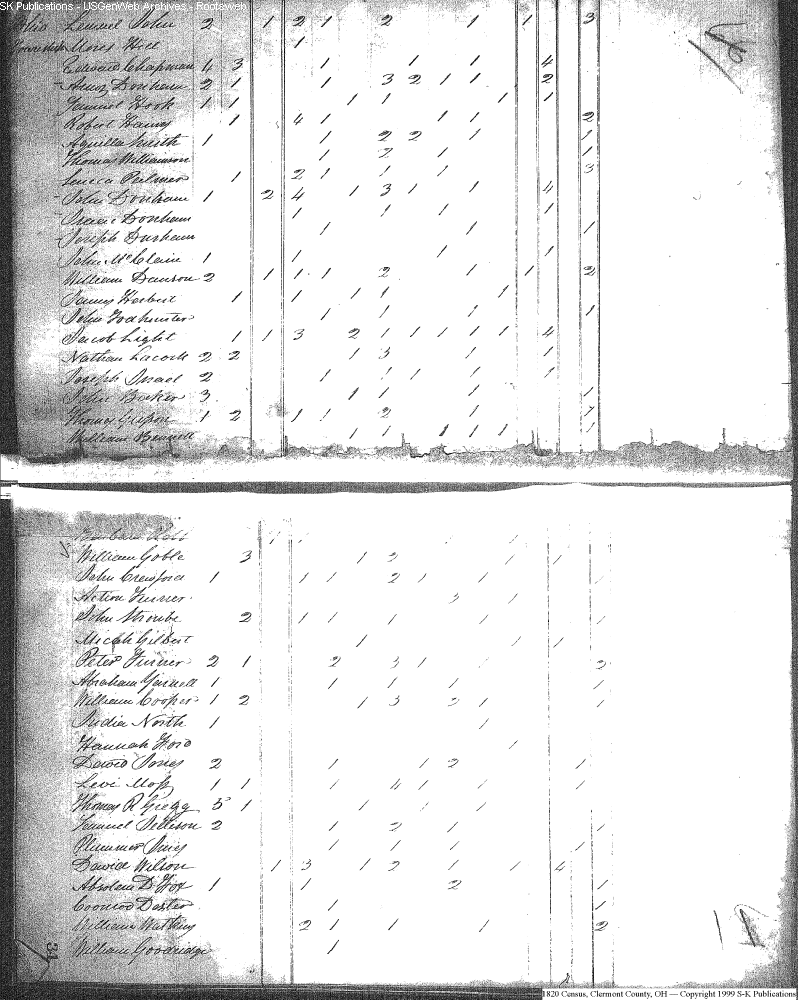 SK Publications - USGenWeb Archives - Rootsweb
Ohio Lemuel John 2 1 2 1 2 1 1 3
Township Moses Hill 1
Edward Chapman 4 3 1 1 1 4
Amos Donham 2 1 1 3 2 1 1 2
Samuel Hook 1 1 1 1 1 1
Robert Haines 1 4 1 1 1 2
Aquilla North 1 1 2 2 1 1
Thomas Williamson 1 2 1 1
Palmer 1 2 1 1 1 3
John Donham 1 2 4 1 3 1 1 4
Isaac Donham 1 1 1 1
Joseph Durham 1 1 1
John McClain 1 1 1 1
William Dawson 2 1 1 1 2 1 1 2
James Herbert 1 1 1 1 1
John 1 1 1 1
Jacob Light 1 1 3 2 1 1 1 1 1 4
Nathan Lacock 2 2 1 3 1 1
Joseph Israel 2 1 1 1 1 1
John Baker 3 1 1 1 1
Thomas 1 2 1 1 2 1 1
William Bennett 1 1 1 1 1
William Goble 3 1 2 1 1
John Crawford 1 1 1 2 1 1 1
Turner 3 1
John Stroube 2 1 1 1 1 1
Micah Gilbert 1 1 1
Peter Turner 2 1 2 3 1 1 2
Abraham 1 1 1 1 1
William Cooper 1 2 1 3 2 1 1
North 1 1
Hannah Ford 1
David Jones 2 1 1 2 1
Levi Moss 1 1 1 4 1 1 1
Thomas R Gregg 5 1 1 1 1
Samuel Jellison 2 1 2 1 1
Plummer 1 1 1 1
David Wilson 1 3 1 2 1 1 4
Absolem D Fox 1 1 2 1
Coonrod Dexter 1 1
William Watkins 2 1 1 1 2
William Goodridge 1
34
1820 Census, Clermont County, OH — Copyright 1999 S-K Publications